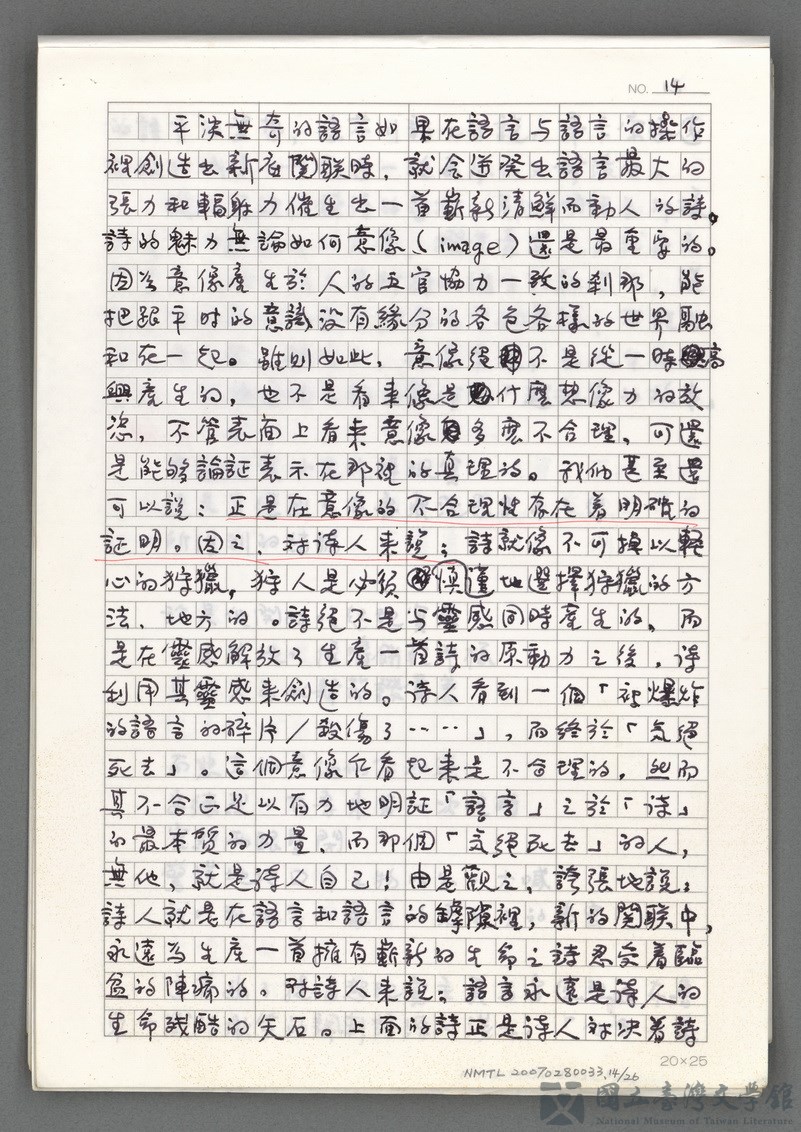 NO. 14
平淡無奇的語言如果在語言与語言的操作
裡創造出新的関联時，就会迸発出語言最大的
張力和輻射力催生出一首嶄新清鮮而動人的詩。
詩的魅力無論如何意像（image）還是最重要的。
因为意像產生於人的五官協力一致的剎那，能
把跟平时的意識没有緣分的各色各樣的世界融
和在一起。雖則如此，意像絕不是從一時高
興產生的，也不是看来像是什麼想像力的放
恣，不管表面上看来意像多麽不合理，可還
是能够論証表示在那裡的真理的。我们甚至還
可以說：正是在意像的不合理性存在着明確的
証明。因之、对诗人来說；詩就像不可掉以輕
心的狩獵，狩人是必須慎謹地選擇狩獵的方
法、地方的。詩絕不是与靈感同時產生的，而
是在靈感解放了生產一首詩的原動力之後，诗
利用其靈感来創造的。诗人看到一個「被爆炸
的語言的碎片／殺傷了……」，而終於「気絕
死去」。這個意像乍看起来是不合理的，然而
其不合正是以有力地明証「語言」之於「诗」
的最本質的力量，而那個「気絕死去」的人，
無他，就是诗人自己！由是觀之，誇張地說；
詩人就是在語言和語言的罅隙裡，新的関联中，
永遠為生產一首擁有嶄新的生命之詩忍受着臨
盆的陣痛的。对詩人来說；語言永遠是诗人的
生命残酷的矢石。上面的詩正是诗人对决着詩
20×25
NMTL 20070280033.14/26
國立臺灣文學館
National Museum of Taiwan Literature